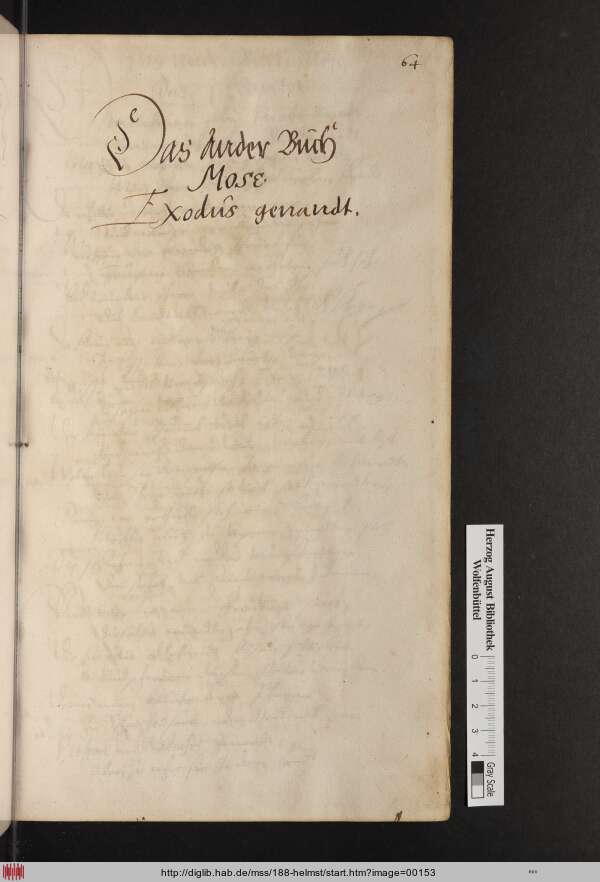 64
Das Ander Buch
Mose.
Exodus genandt.
Herzog August Bibliothek
Wolfenbüttel
0 1 2 3 4
Gray Scale
http://diglib.hab.de/mss/188-helmst/start.htm?image=00153